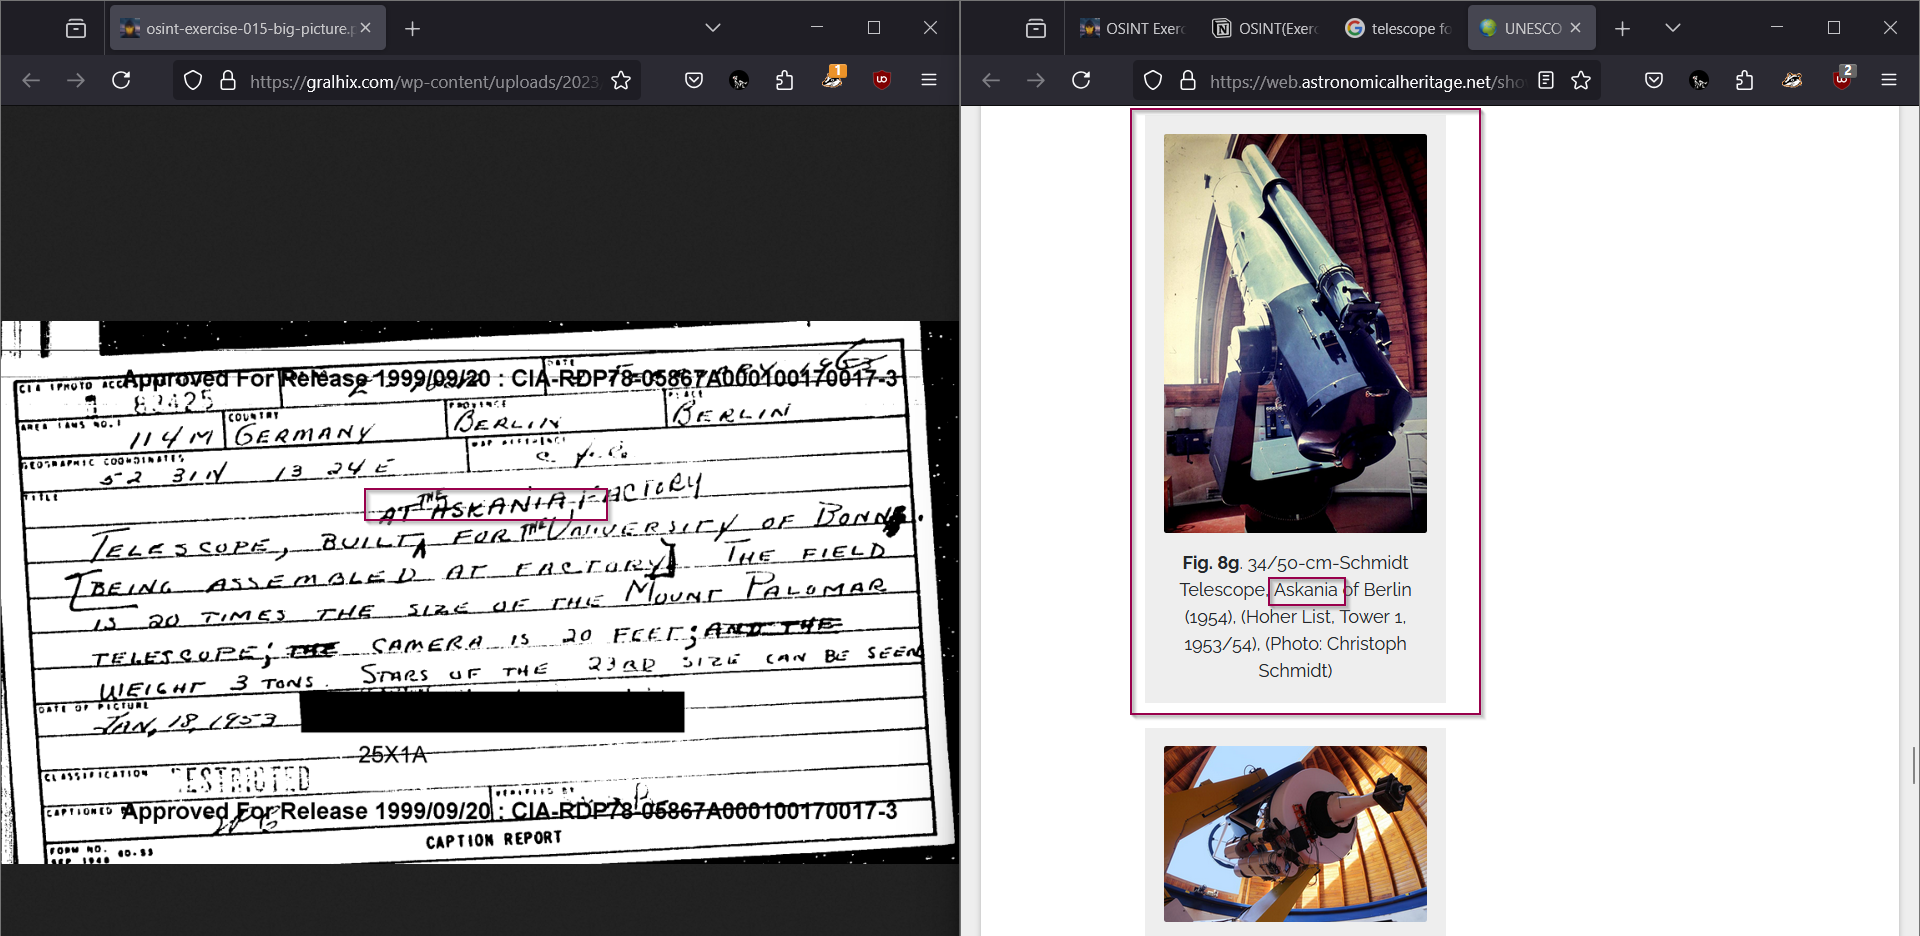 osint-exercise-015-big-picture.p
https://gralhix.com/wp-content/uploads/2023
1
Approved For Release 1999/09/20 : CIA-RDP78-05867A000100170017-3
DATE
82425
AREA
COUNTRY
PROVINCE
PLACE
114M
GERMANY
BERLIN
BERLIN
GEOGRAPHIC COORDINATES
52 31N 13 24E
TITLE
AT THE ASKANIA FACTORY
TELESCOPE, BUILT FOR THE UNIVERSITY OF BONN.
[BEING ASSEMBLED AT FACTORY] THE FIELD
IS 20 TIMES THE SIZE OF THE MOUNT PALOMAR
TELESCOPE; THE CAMERA IS 20 FEET; AND THE
WEIGHT 3 TONS. STARS OF THE 23RD SIZE CAN BE SEEN
DATE OF PICTURE
JAN, 18, 1953
25X1A
CLASSIFICATION
RESTRICTED
CAPTIONED
Approved For Release 1999/09/20 : CIA-RDP78-05867A000100170017-3
FORM NO.
SEP 1948
CAPTION REPORT
OSINT Exerc
OSINT(Exerc
telescope fo
UNESCO
https://web.astronomicalheritage.net/sho
2
Fig. 8g. 34/50-cm-Schmidt
Telescope, Askania of Berlin
(1954), (Hoher List, Tower 1,
1953/54), (Photo: Christoph
Schmidt)